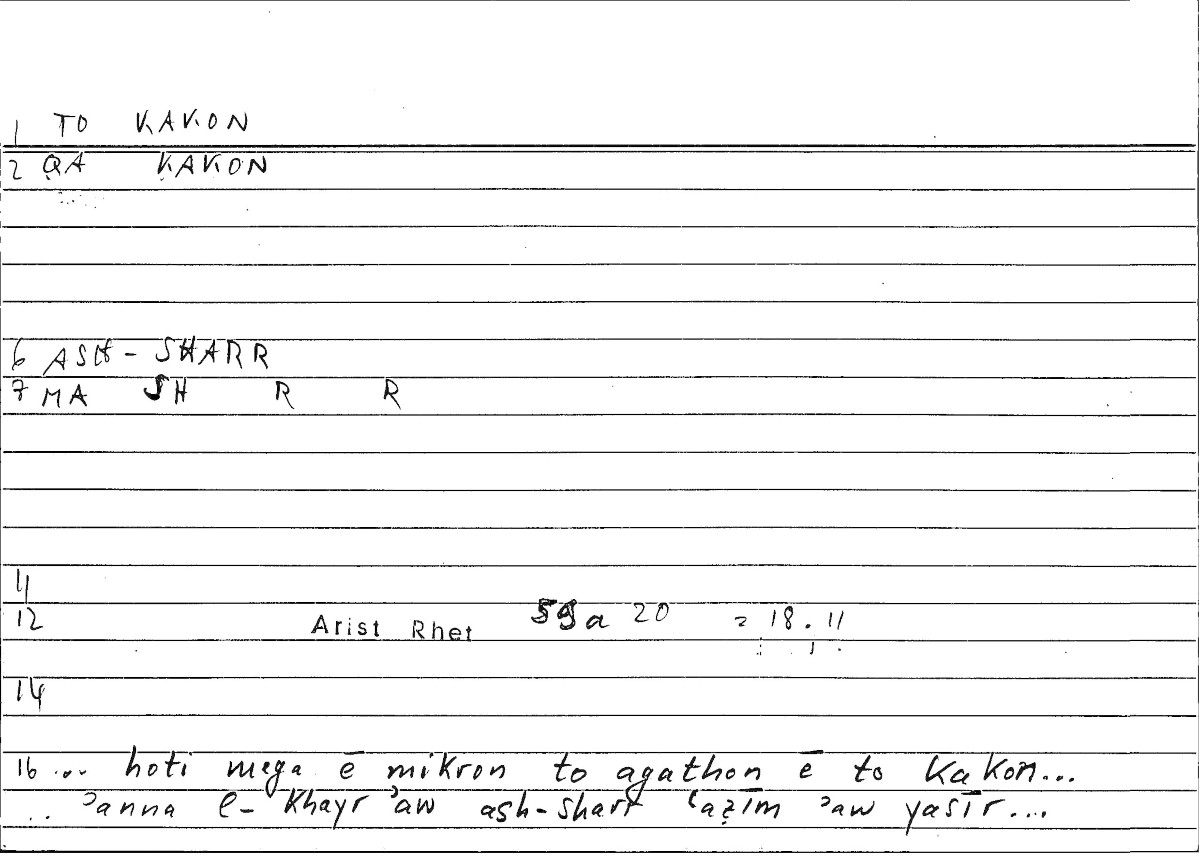 1 TO KAKON
2 QA KAKON
6 ASH - SHARR
7 MA SH R R
11
12 Arist Rhet 59a 20 = 18.11
14
16 ... hoti mega ē mikron to agathon ē to kakon...
.. ʾanna l- khayr ʾaw ash-sharr ʿaẓīm ʾaw yasīr...